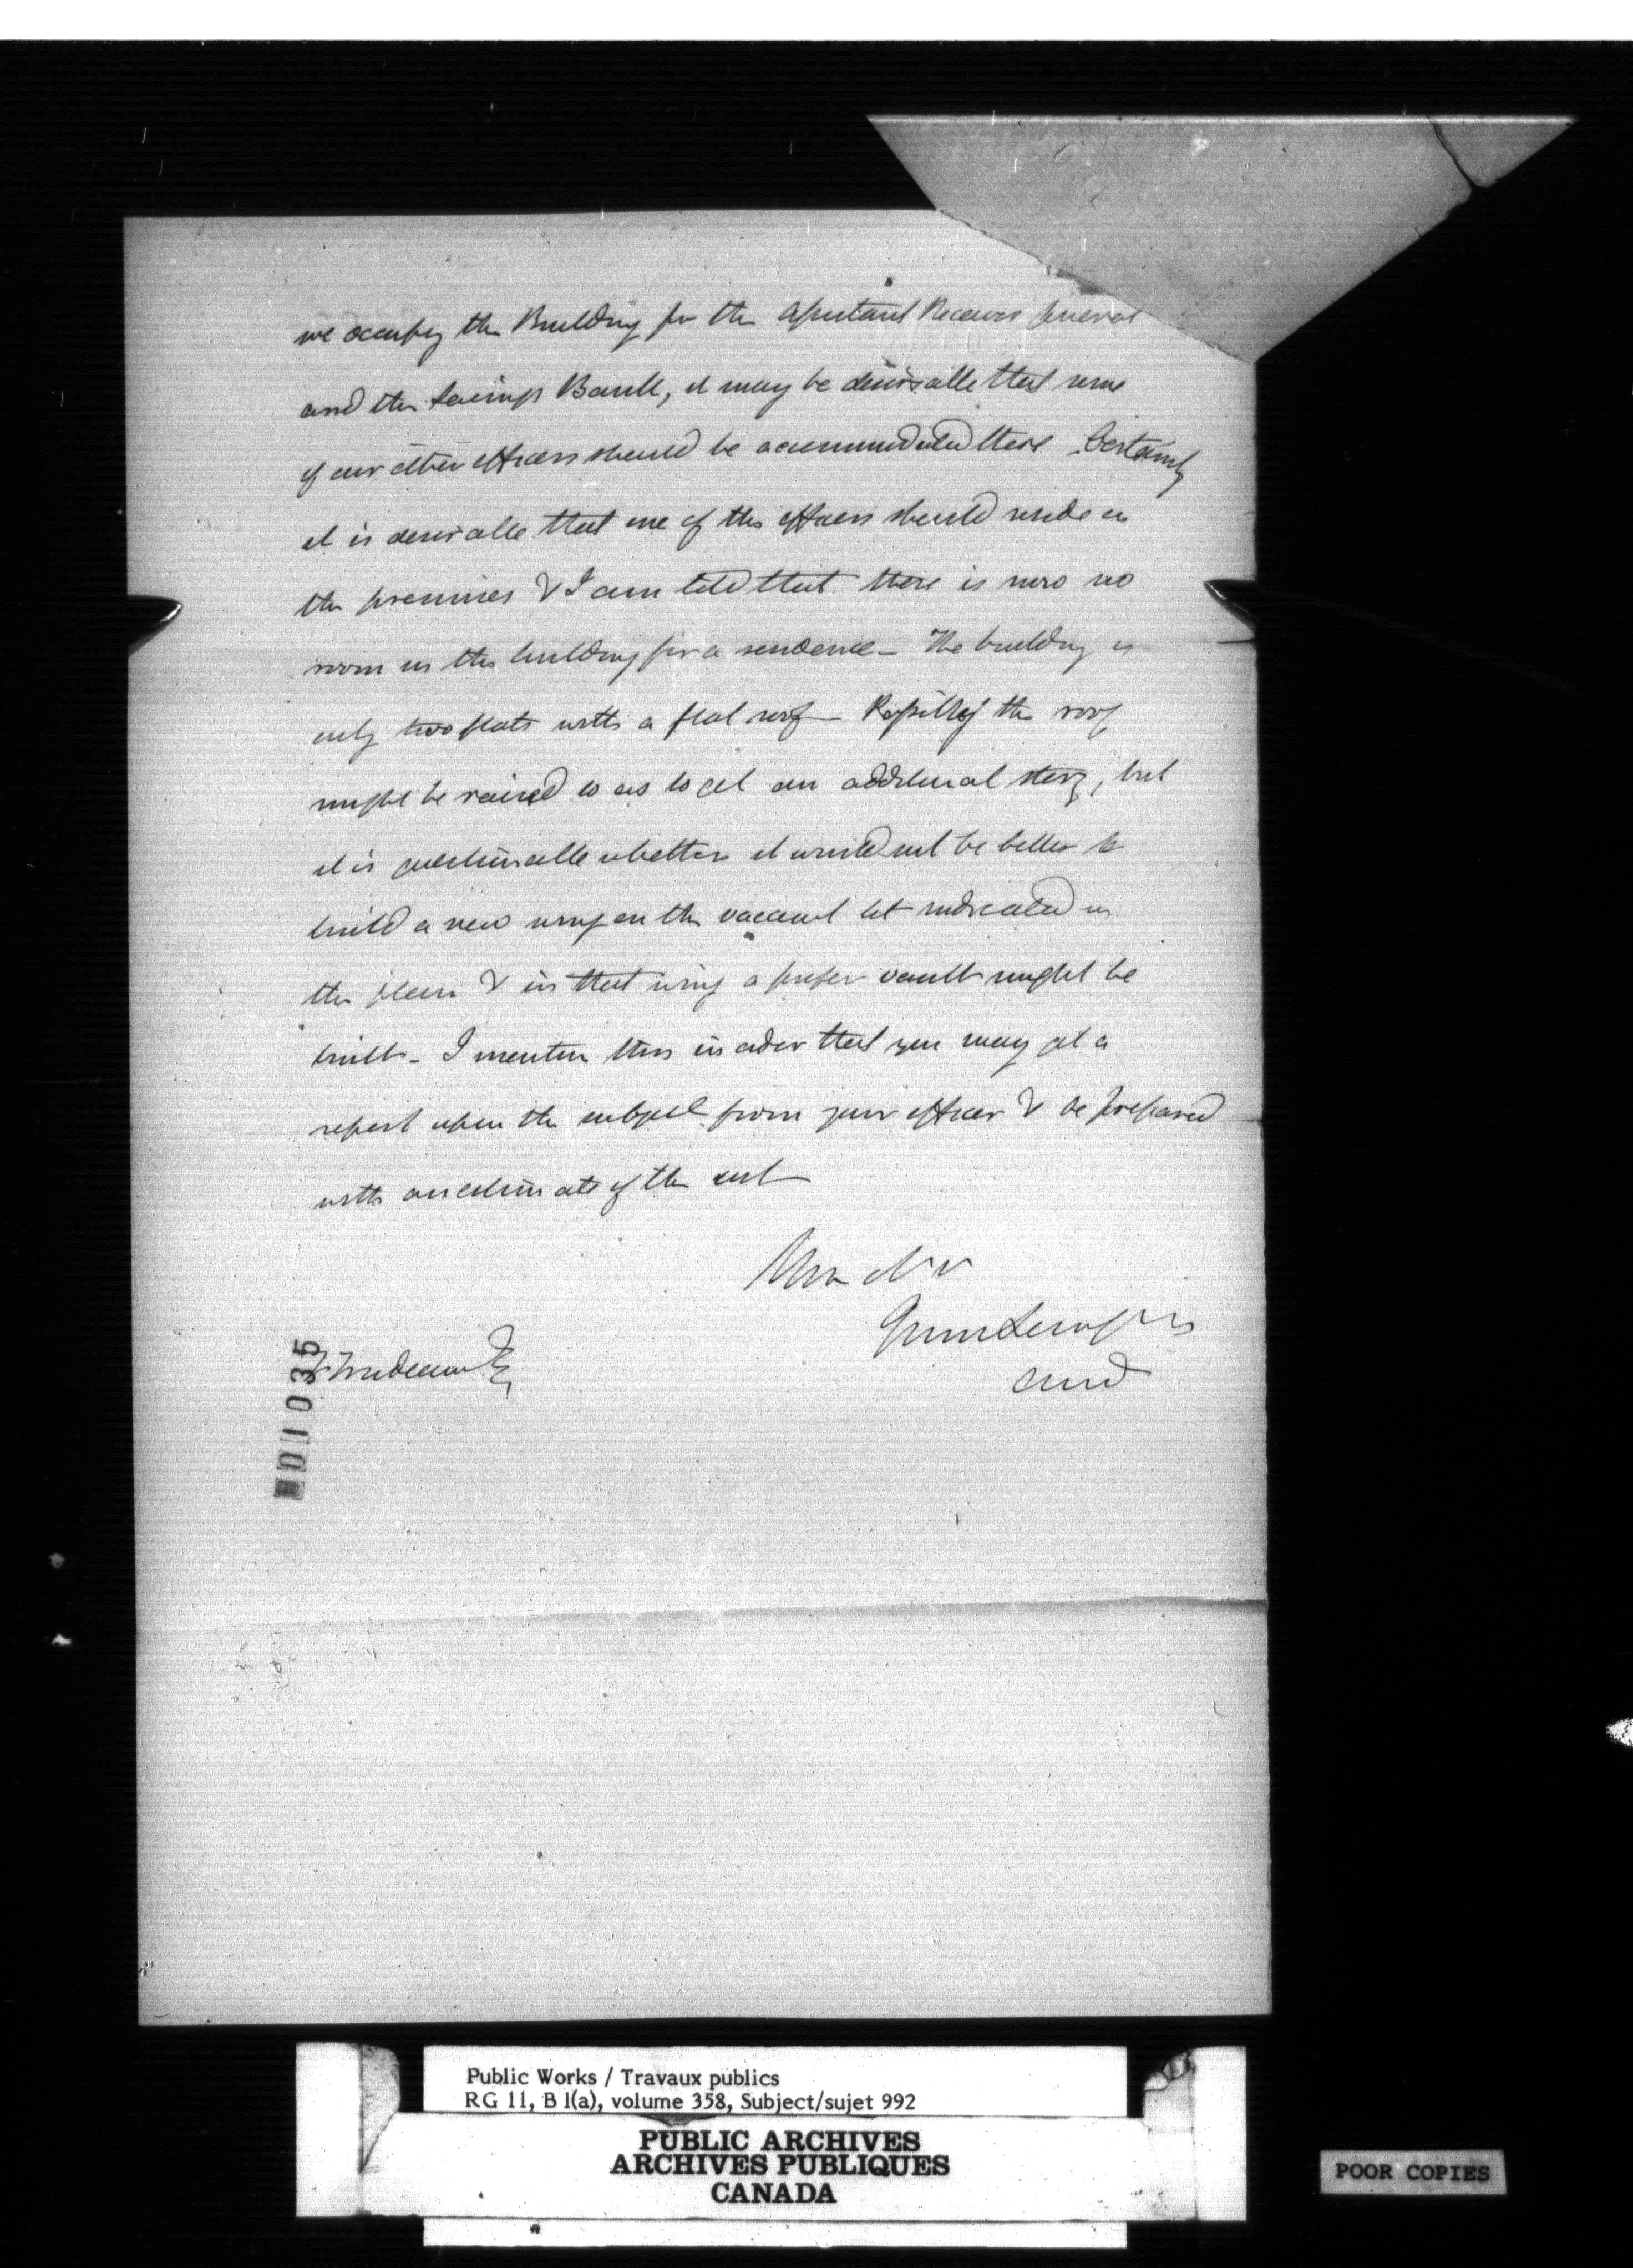 we occupy the Building for the Assistant Receiver General
and the Savings Bank, it may be desirable that some
of our other officers should be accommodated there. Certainly
it is desirable that one of the officers should reside on
the premises & I am told that there is now no
room in the building for a residence – The building is
only two flats with a flat roof – Possibly the roof
might be raised so as to get an additional story, but
it is questionable whether it would not be better to
build a new wing on the vacant lot indicated in
the plan & in that wing a proper vault might be
built – I mention this in order that you may get a
report upon the subject from your officer & be prepared
with an estimate of the cost
Trudeau Esq
001035
Public Works / Travaux publics
RG 11, B 1(a), volume 358, Subject/sujet 992
PUBLIC ARCHIVES
ARCHIVES PUBLIQUES
CANADA
POOR COPIES